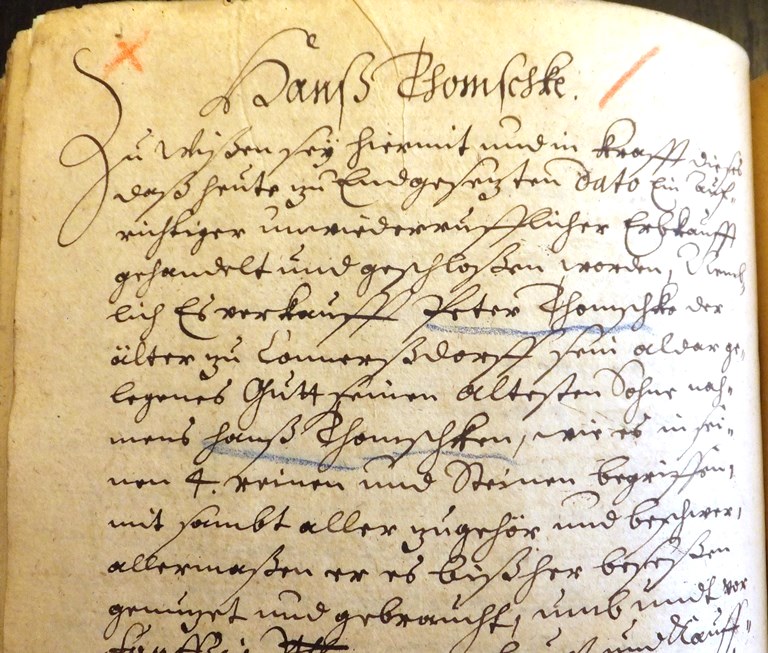 Hanß Thomschke.
Zu Wißen sey hiermit und in krafft dieses
daß heute zu Endgesezten dato Ein auf-
richtiger unwiederrufflicher Erbkauff
gehandelt und geschloßen worden, Nemb
lich Es verkaufft Peter Thomschke der
älter zu Connerßdorff sein aldar ge-
legenes Gutt seinen ältesten Sohne nah-
mens Hanß Thomschken, wie es in sei-
nen 4. reinen und Steinen begriffen,
mit sambt aller zugehör und beschwer,
allermaßen er es bißher beseßen
genuzet und gebraucht, umb undt vor
und Kauff-